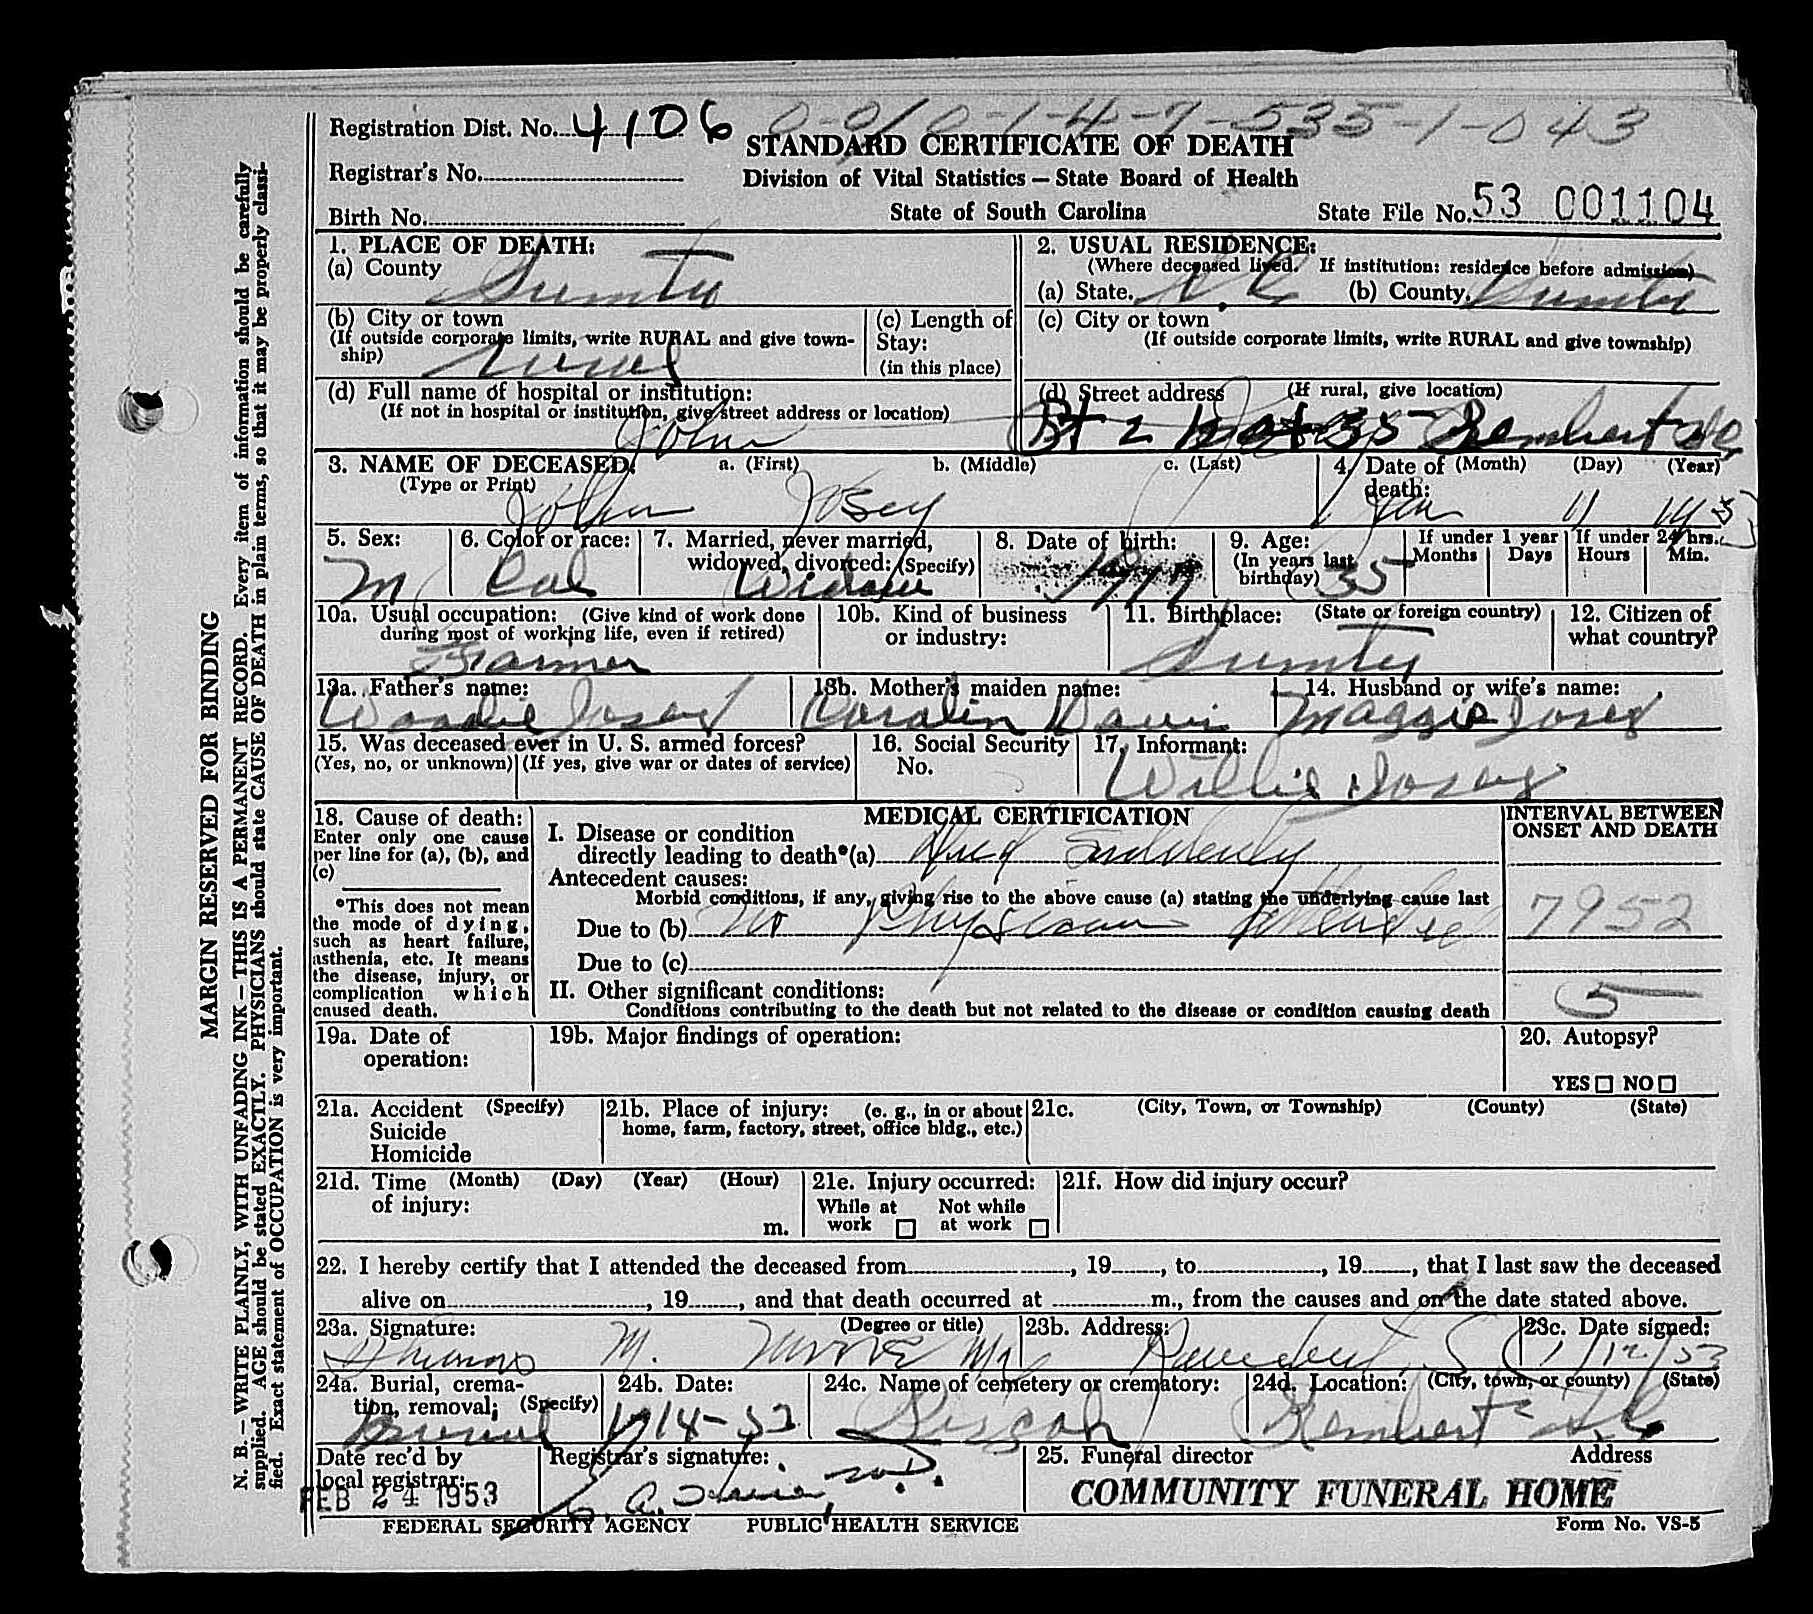 Registration Dist. No. 4106 0-0/0-1-4-7-535-1-043
STANDARD CERTIFICATE OF DEATH
Registrar's No.
Division of Vital Statistics — State Board of Health
Birth No.
State of South Carolina
State File No. 53 001104
1. PLACE OF DEATH:
(a) County Sumter
2. USUAL RESIDENCE:
(Where deceased lived. If institution: residence before admission)
(a) State. S.C. (b) County. Sumter
(b) City or town
(If outside corporate limits, write RURAL and give township)
rural
(c) Length of Stay:
(in this place)
(c) City or town
(If outside corporate limits, write RURAL and give township)
(d) Full name of hospital or institution:
(If not in hospital or institution, give street address or location)
John
(d) Street address (If rural, give location)
Rt 2 Box 35 Rembert SC
3. NAME OF DECEASED: a. (First) b. (Middle) c. (Last)
(Type or Print)
John Josey
4. Date of death: (Month) (Day) (Year)
Jan 11 1953
5. Sex:
M
6. Color or race:
Col
7. Married, never married, widowed, divorced: (Specify)
Widow
8. Date of birth:
1917
9. Age:
(In years last birthday) 35
If under 1 year
Months Days
If under 24 hrs.
Hours Min.
10a. Usual occupation: (Give kind of work done during most of working life, even if retired)
Farmer
10b. Kind of business or industry:
11. Birthplace: (State or foreign country)
Sumter
12. Citizen of what country?
13a. Father's name:
Woodie Josey
13b. Mother's maiden name:
Coralin Davis
14. Husband or wife's name:
Maggie Josey
15. Was deceased ever in U. S. armed forces?
(Yes, no, or unknown) (If yes, give war or dates of service)
16. Social Security No.
17. Informant:
Willie Josey
18. Cause of death:
Enter only one cause per line for (a), (b), and (c)
*This does not mean the mode of dying, such as heart failure, asthenia, etc. It means the disease, injury, or complication which caused death.
MEDICAL CERTIFICATION
INTERVAL BETWEEN ONSET AND DEATH
I. Disease or condition
directly leading to death*(a) Died Suddenly
Antecedent causes:
Morbid conditions, if any, giving rise to the above cause (a) stating the underlying cause last
Due to (b) no Physician attended
7952
Due to (c)
II. Other significant conditions:
Conditions contributing to the death but not related to the disease or condition causing death
5
19a. Date of operation:
19b. Major findings of operation:
20. Autopsy?
YES NO
21a. Accident (Specify)
Suicide
Homicide
21b. Place of injury: (e. g., in or about home, farm, factory, street, office bldg., etc.)
21c. (City, Town, or Township) (County) (State)
21d. Time of injury: (Month) (Day) (Year) (Hour)
m.
21e. Injury occurred:
While at work Not while at work
21f. How did injury occur?
22. I hereby certify that I attended the deceased from , 19 , to , 19 , that I last saw the deceased
alive on , 19 , and that death occurred at m., from the causes and on the date stated above.
23a. Signature: (Degree or title)
M.
23b. Address:
Rembert, S C
23c. Date signed:
1/12/53
24a. Burial, cremation, removal; (Specify)
Burial
24b. Date:
1/14-53
24c. Name of cemetery or crematory:
24d. Location: (City, town, or county) (State)
Rembert S.C.
Date rec'd by local registrar:
FEB 24 1953
Registrar's signature:
M.D.
25. Funeral director Address
COMMUNITY FUNERAL HOME
FEDERAL SECURITY AGENCY PUBLIC HEALTH SERVICE
Form No. VS-5
MARGIN RESERVED FOR BINDING
N. B. — WRITE PLAINLY, WITH UNFADING INK — THIS IS A PERMANENT RECORD. Every item of information should be carefully
supplied. AGE should be stated EXACTLY. PHYSICIANS should state CAUSE OF DEATH in plain terms, so that it may be properly classi-
fied. Exact statement of OCCUPATION is very important.